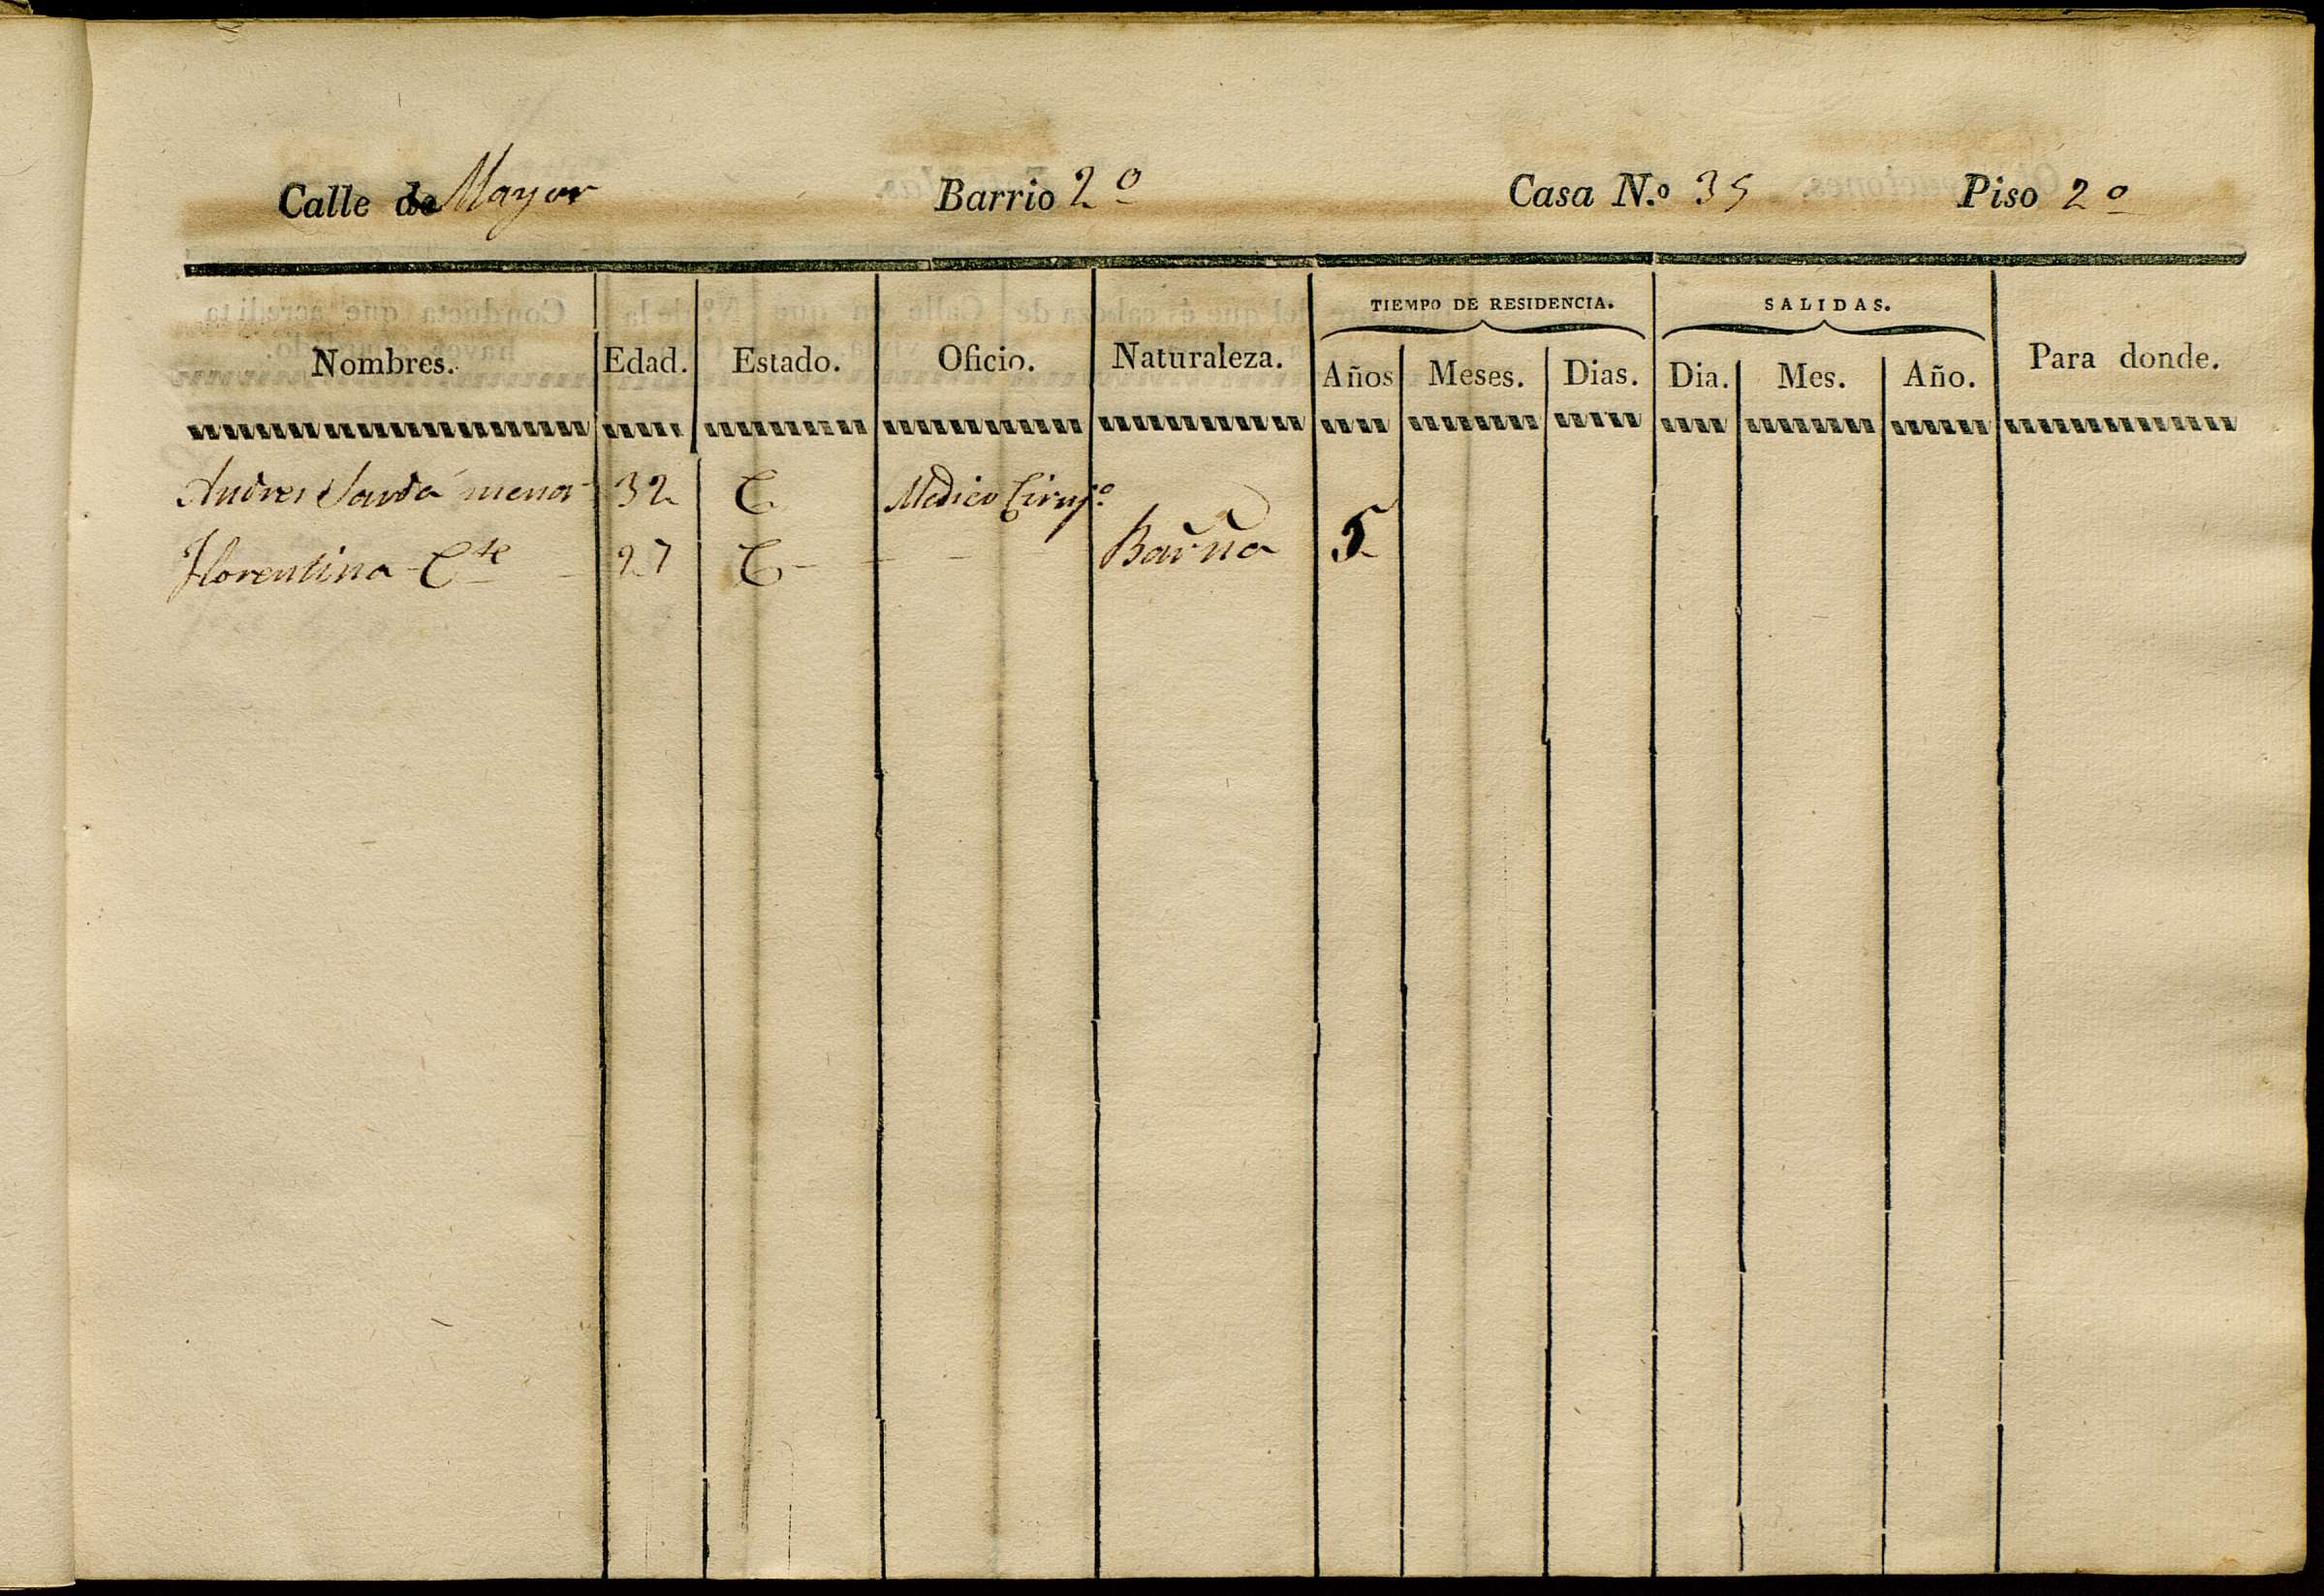 Calle de Mayor Barrio 2º Casa N.º 35 Piso 2º
TIEMPO DE RESIDENCIA. SALIDAS.
Nombres. Edad. Estado. Oficio. Naturaleza. Años Meses. Dias. Dia. Mes. Año. Para donde.
Andres Sardá menor 32 C Medico Ciruj.º
Florentina Cte 27 C - - - Barña 5